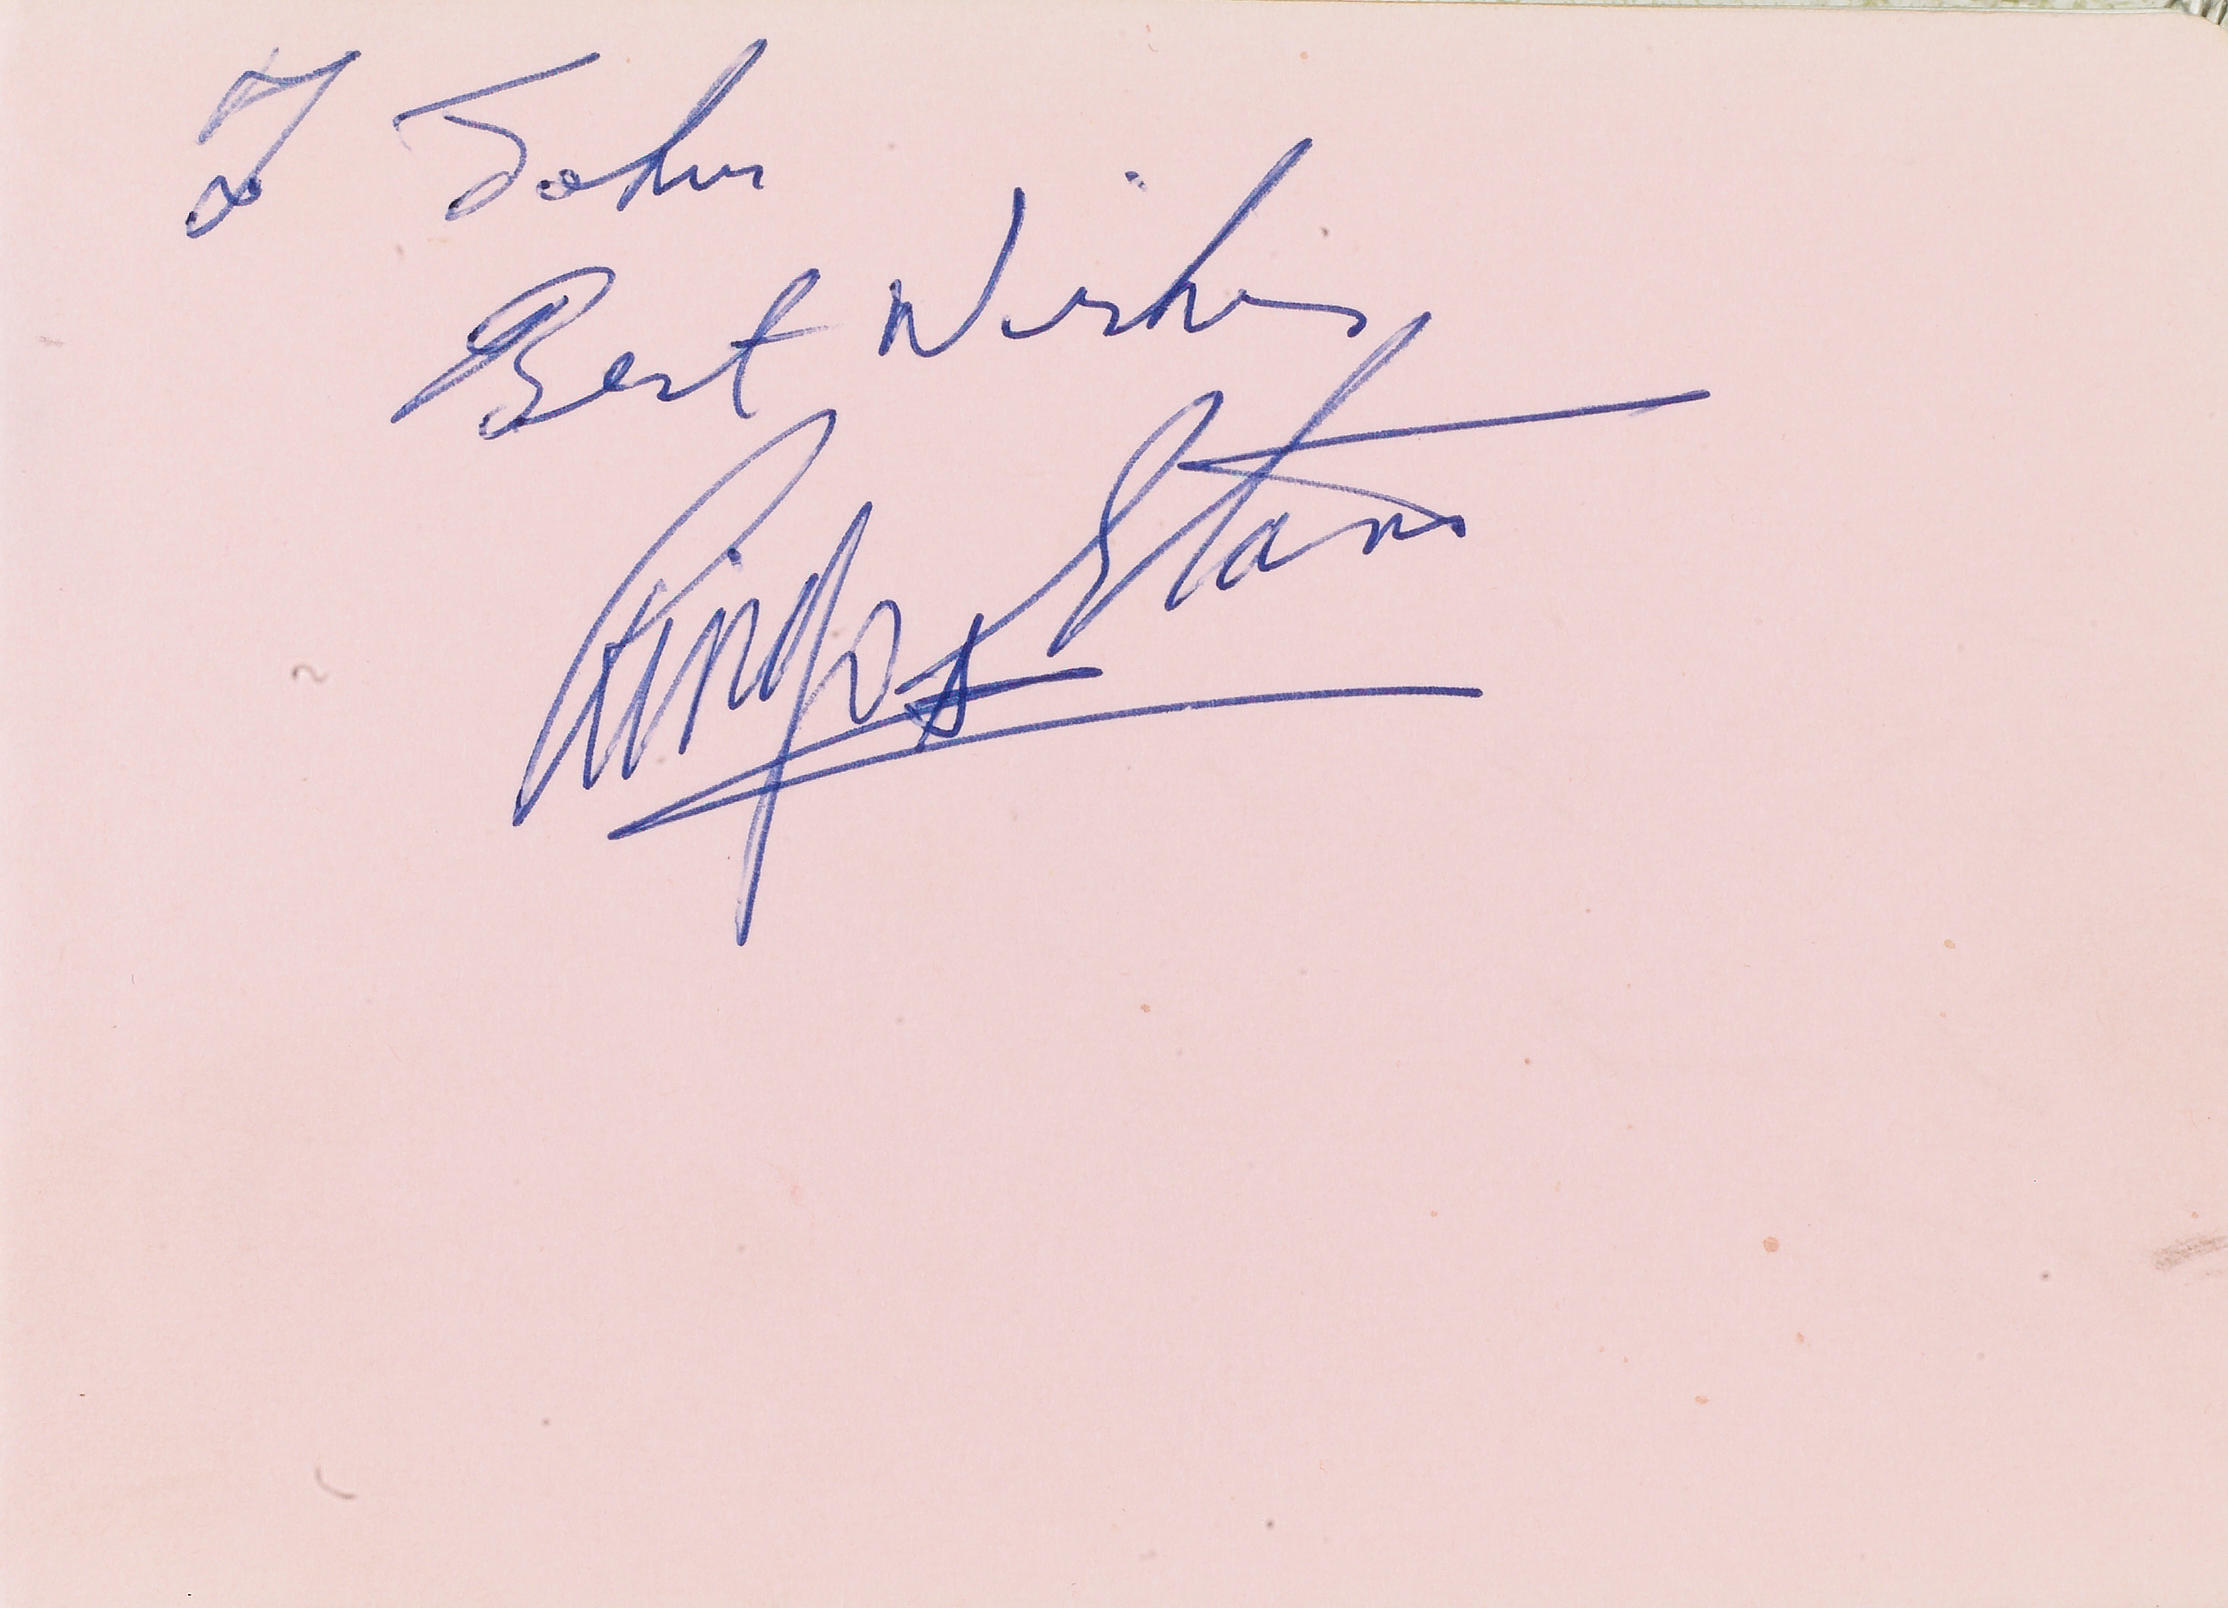 To John
Best Wishes
Ringo Starr